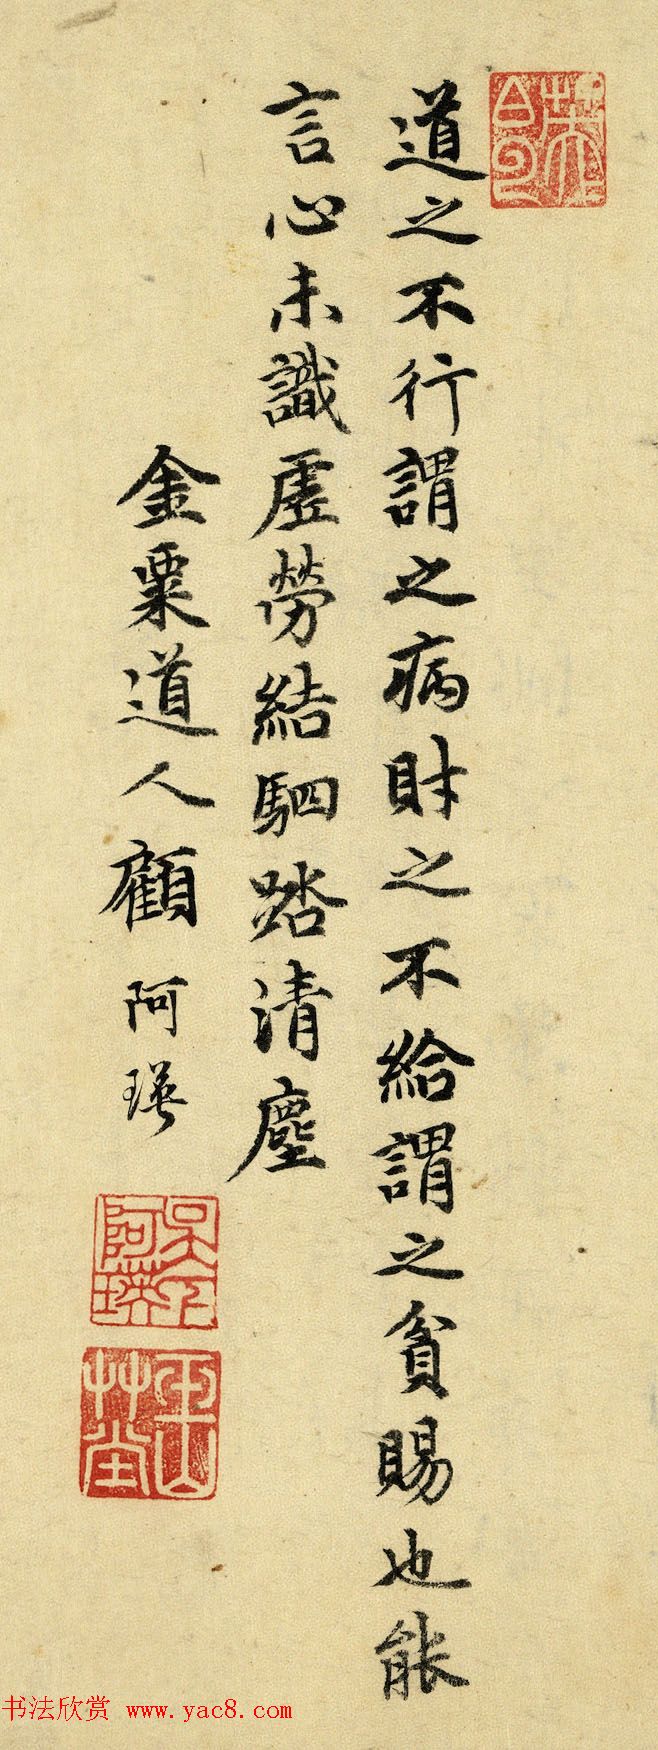 道之不行謂之病財之不給謂之貧賜也能
言心未識虛勞結駟踏清塵
金粟道人顧阿瑛
吳下阿瑛
玉山草堂
书法欣赏 www.yac8.com